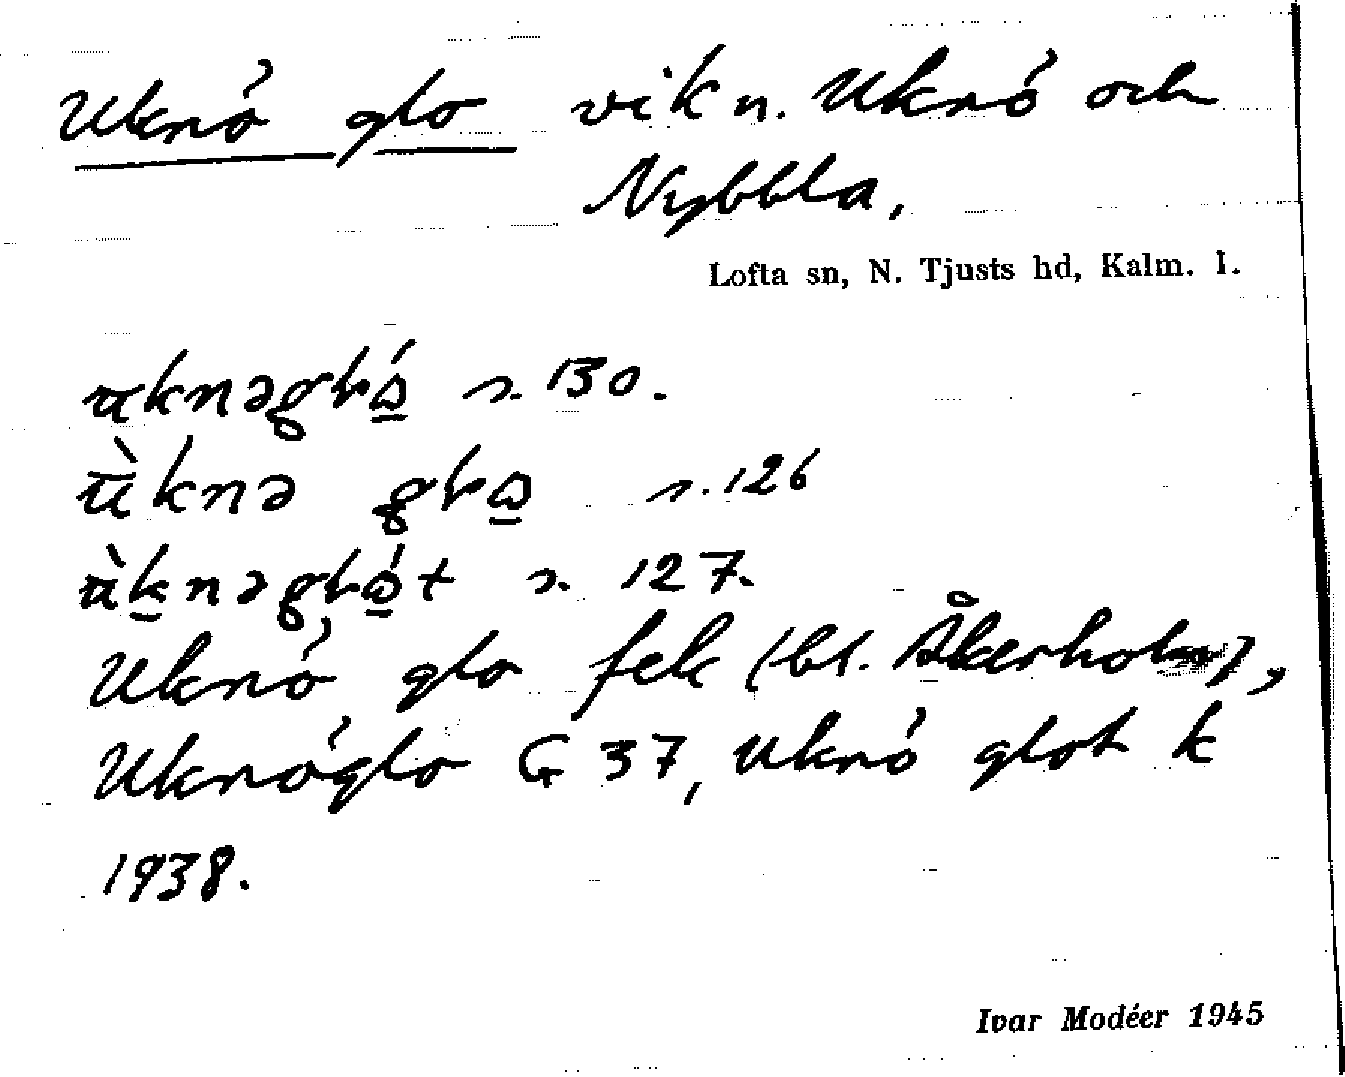 Uknö glo vik n. Uknö och
Nybbla,
Lofta sn, N. Tjusts hd, Kalm. l.
s. 130.
s. 126
s. 127.
Uknö glo fek (bl. Åkerholm),
Uknöglo G 37, Uknö glot k
1938.
Ivar Modéer 1945